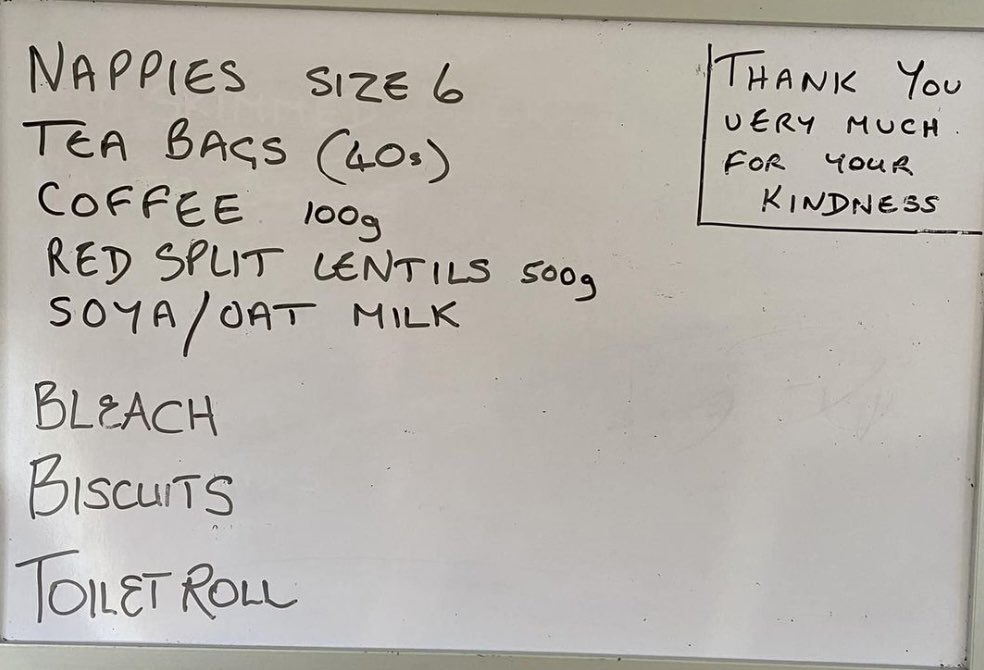 NAPPIES SIZE 6
TEA BAGS (40s)
COFFEE 100g
RED SPLIT LENTILS 500g
SOYA/OAT MILK
BLEACH
BISCUITS
TOILET ROLL
THANK YOU
VERY MUCH
FOR YOUR
KINDNESS